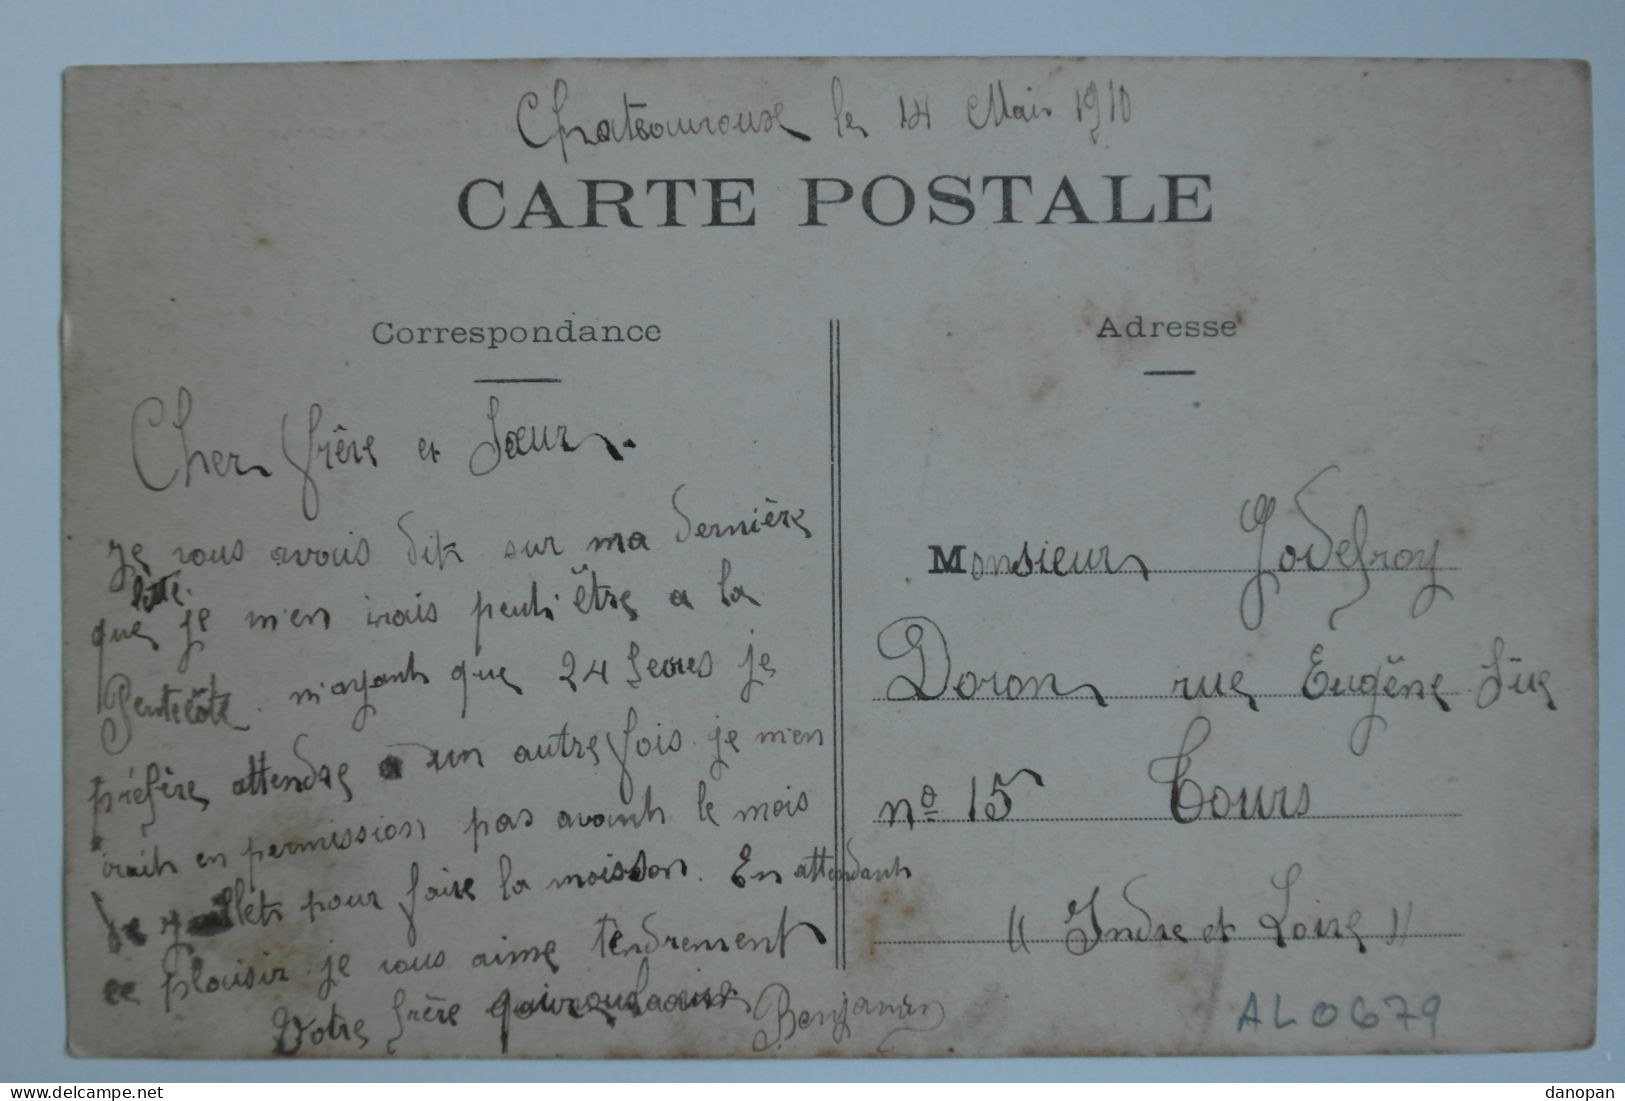 Chateauroux le 14 Mais 1910
CARTE POSTALE
Correspondance
Cher frère et Sœur.
Je vous avais dit sur ma dernière
lettre
que je m'en irais peut être a la
Pentecôte. n'ayant que 24 heures je
préfère attendre un autre fois. je m'en
irait en permission pas avant le mois
de juillet pour faire la moisson. En attendant
ce plaisir je vous aime tendrement
Votre frère qui vous Benjamin
Adresse
Monsieur Godefroy
Doron rue Eugène Süe
no 15 Tours
(( Indre et Loire ))
AL0679
danopan